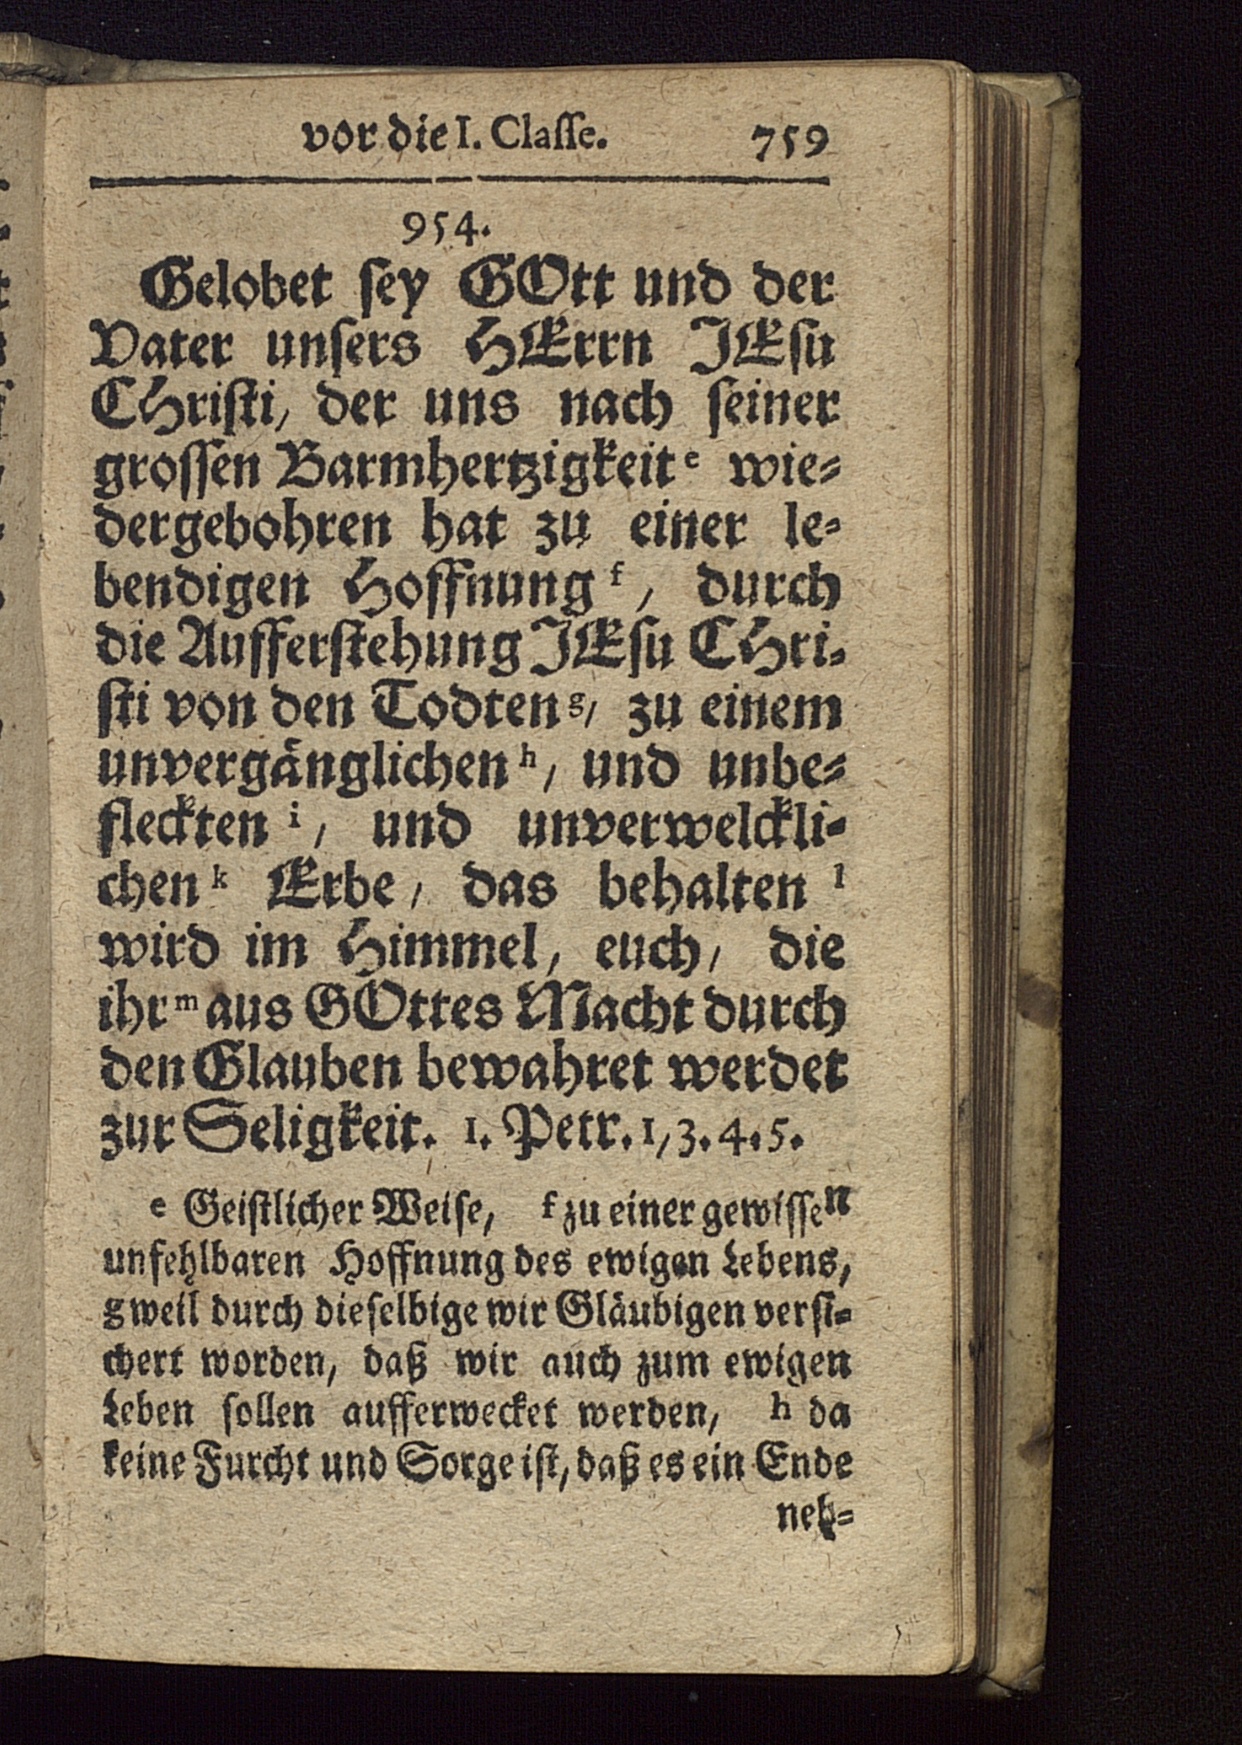 vor die I. Classe. 759
954.
Gelobet sey GOtt und der
Vater unsers HErrn JEsu
CHristi, der uns nach seiner
grossen Barmhertzigkeit e wie-
dergebohren hat zu einer le-
bendigen Hoffnung f, durch
die Aufferstehung JEsu CHri-
sti von den Todten g, zu einem
unvergänglichen h, und unbe-
fleckten i, und unverwelckli-
chen k Erbe, das behalten l
wird im Himmel, euch, die
ihr m aus GOttes Macht durch
den Glauben bewahret werdet
zur Seligkeit. 1. Petr. 1, 3. 4. 5.
e Geistlicher Weise, f zu einer gewissen
unfehlbaren Hoffnung des ewigen Lebens,
g weil durch dieselbige wir Gläubigen versi-
chert worden, daß wir auch zum ewigen
Leben sollen aufferwecket werden, h da
keine Furcht und Sorge ist, daß es ein Ende
neh-